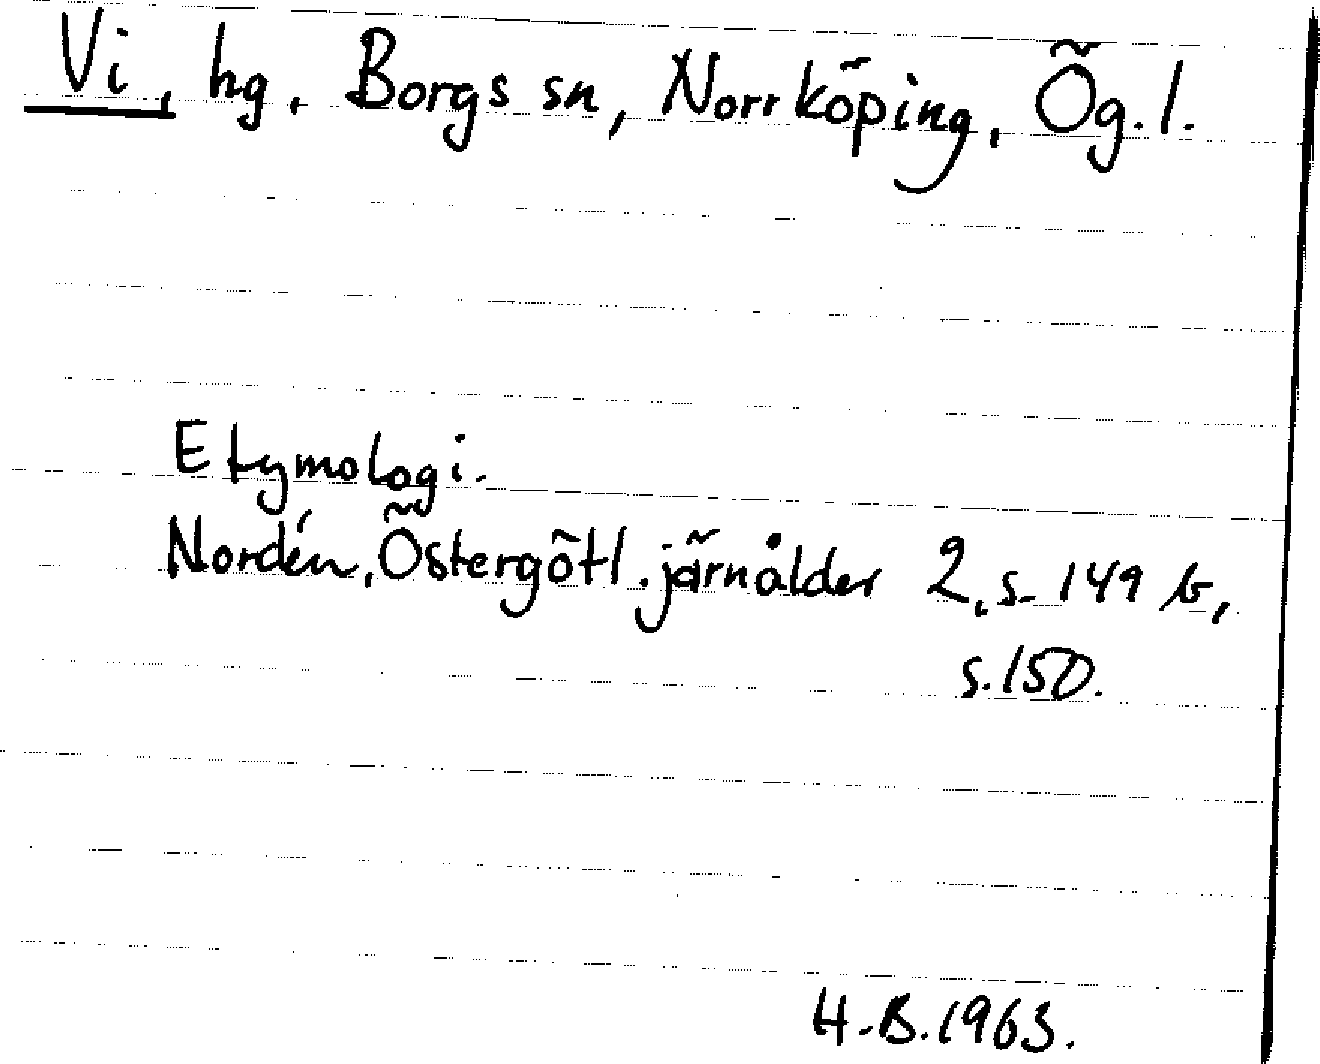 Vi, hg, Borgs sn, Norrköping, Ög.l.
Etymologi.
Nordén, Östergötl. järnålder 2, s. 149 b,
s. 150.
H.B. 1963.